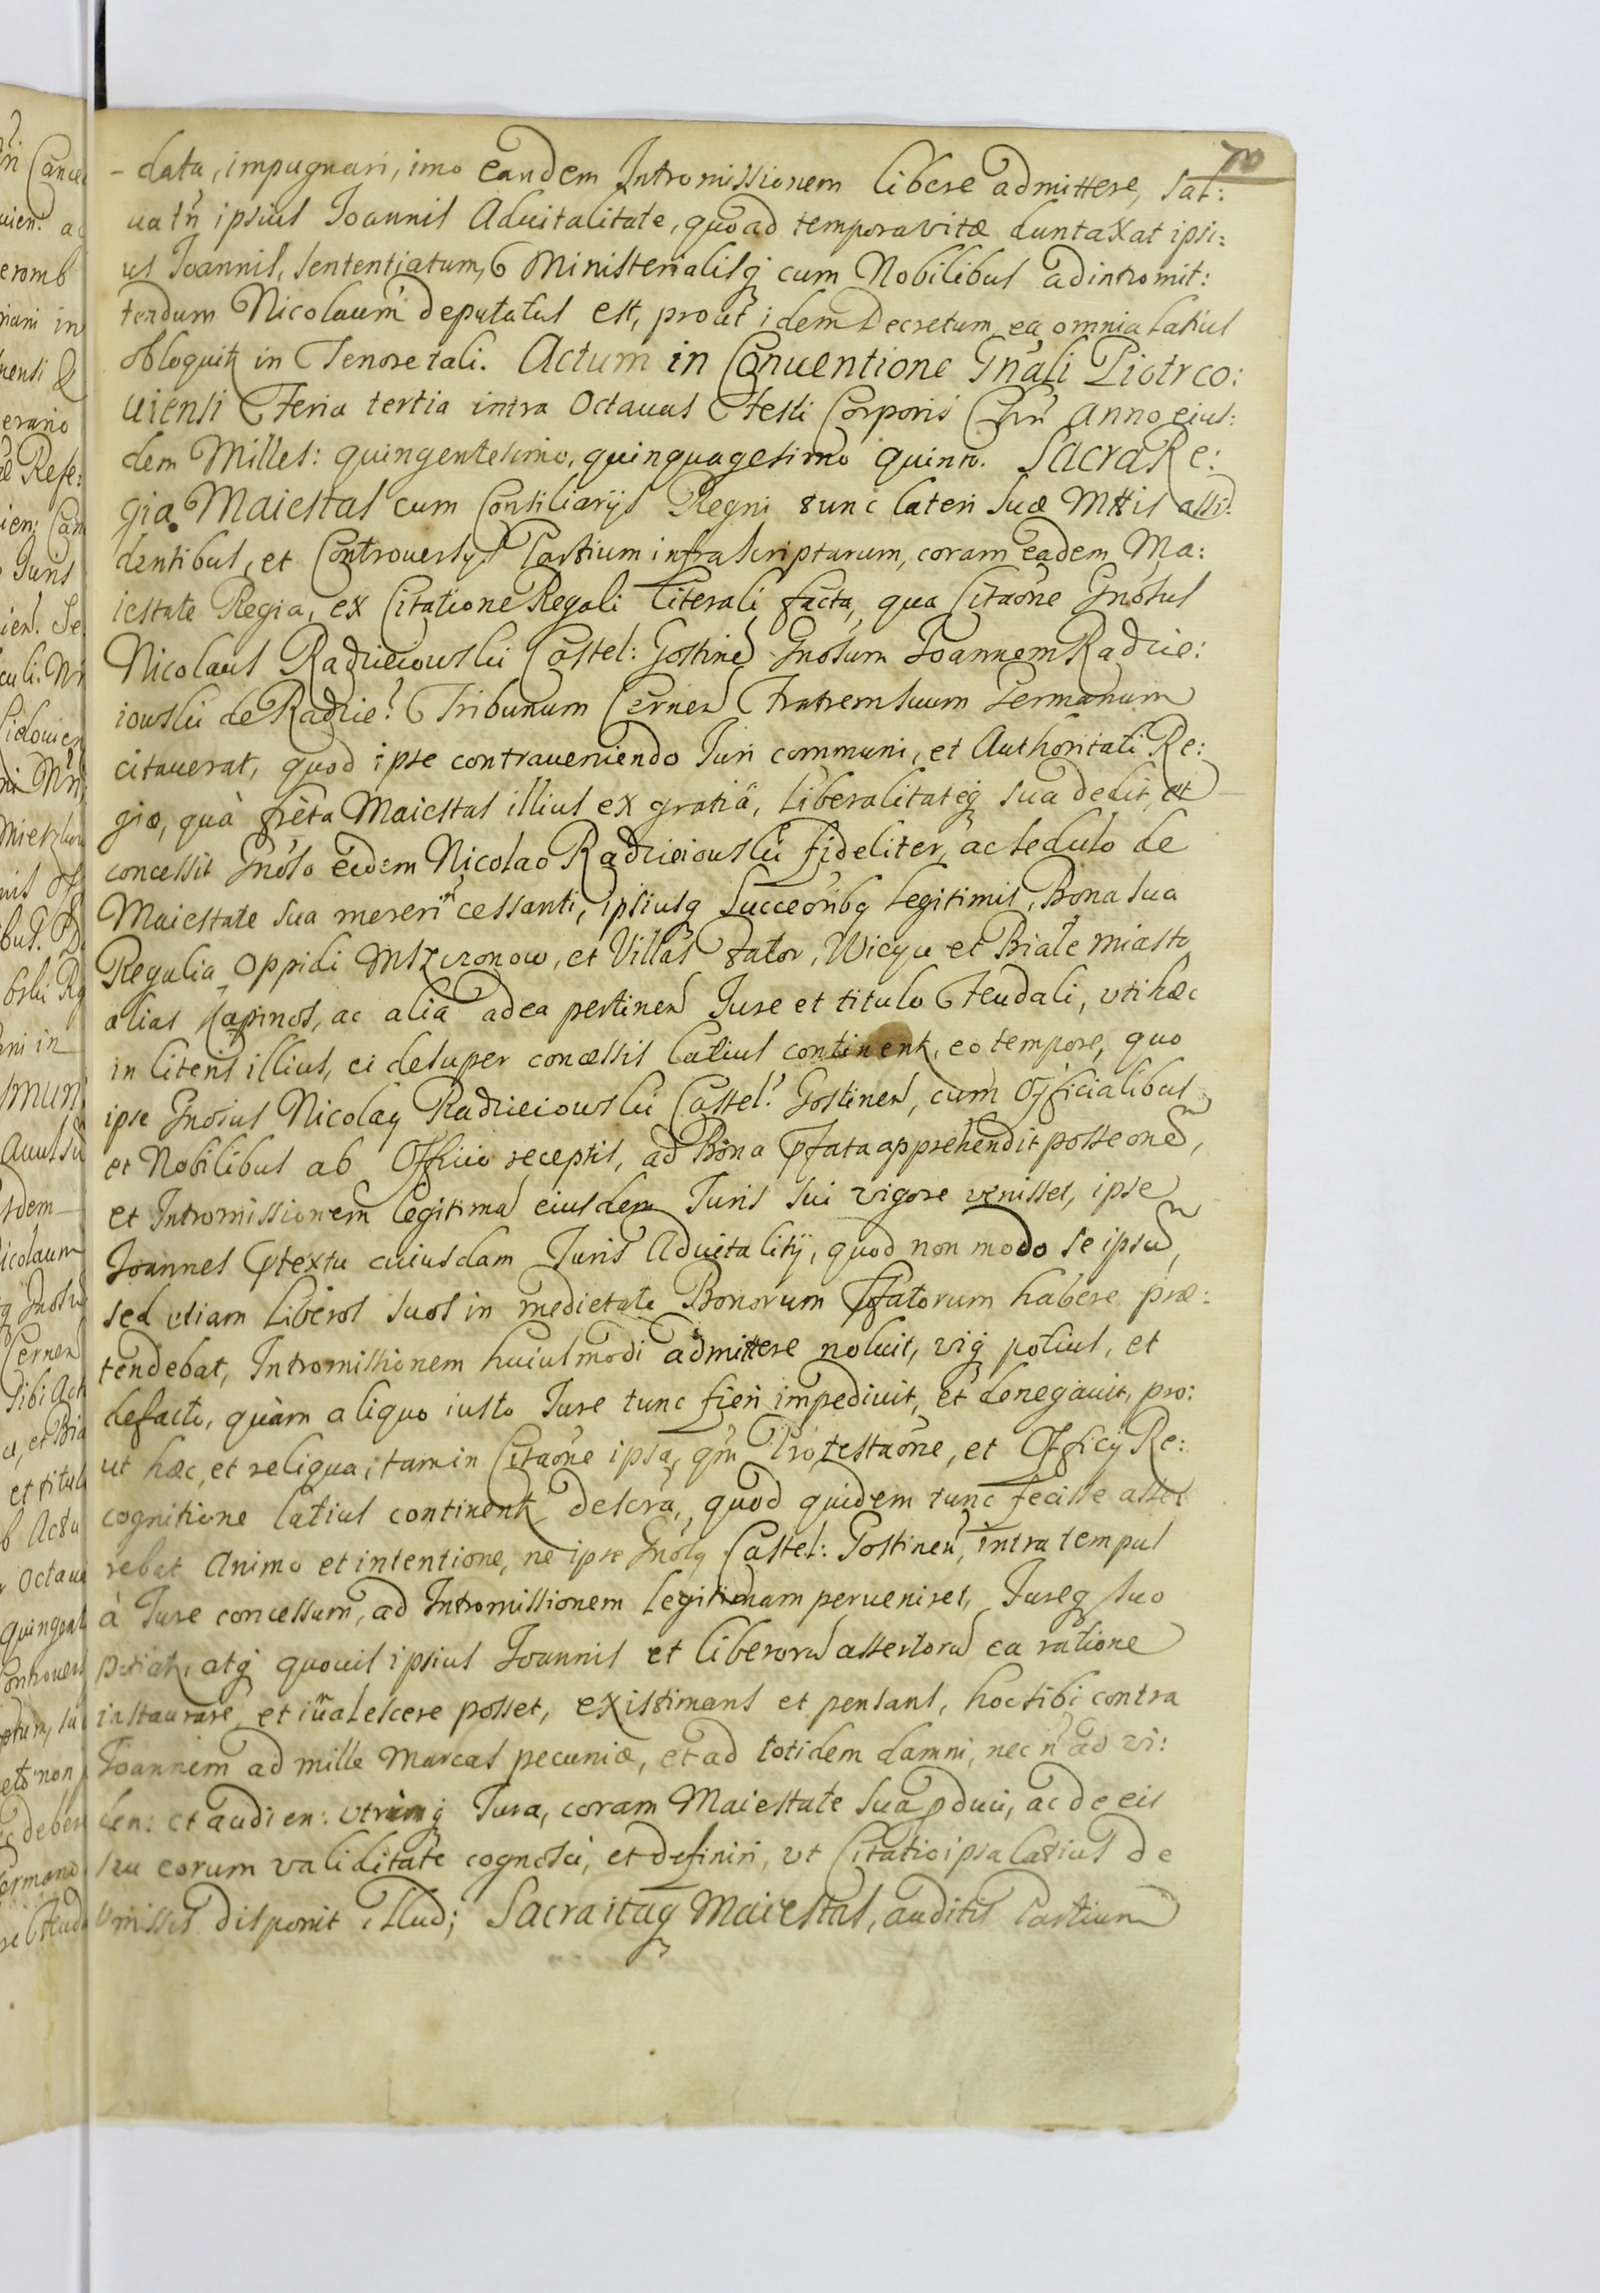 70
- data, impugnari, imo eandem Intromissionem libere admittere, sal:
ua tn̄ ipsius Joannis Aduitalitate, quoad tempora vitæ duntaxat ipsi:
us Joannis, sententiatum, Ministerialisq; cum Nobilibus ad intromit:
tendum Nicolaum deputatus est, prout idem Decretum, ea omnia latius
obloquitr in Tenore tali. Actum in Conuentione Gn̄ali Piotrco:
uiensi Feria tertia intra Octauas Festi Corporis Chri̅ Anno eius:
dem Milles: quingentesimo, quinquagesimo quinto. Sacra Re:
gia Maiestas cum Consiliarijs Regni tunc lateri suæ Mttis assi:
dentibus, et Controuersijs Partium infrascriptarum, coram eadem Ma:
iestate Regia, ex Citatione Regali literali facta, qua Citaōne Gnōsus
Nicolaus Radzieiowski Castel: Gostinen̄ Gnosum Joannem Radzie:
iowski de Radzie: Tribunum Cernen̄ Fratrem suum Germanum
citauerat, quod ipse contraueniendo Juri communi, et Authoritati Re:
giæ, quà fréta Maiestas illius ex gratiâ, liberalitateq; sua dedit, et
concessit Gnōso eidem Nicolao Radzieiowski fideliter, ac sedulo de
Maiestate sua mereri n̄ cessanti, ipsiusq; Succeōribq; legitimis, Bona sua
Regalia Oppidi Mszczonow, et Villas Zator, Wicyu et Białe miasto
alias Kapinos, ac alia ad ea pertinen̄ Jure et titulo Feudali, uti hæc
in literis illius, ei desuper concessis latius continentr, eo tempore, quo
ipse Gnosus Nicolaq Radzieiowski Castel: Gostinen̄, cum Officialibus
et Nobilibus ab Officio receptis, ad Bona pfata apprehendit posseonē,
et Intromissionem legitimā eiusdem Juris sui vigore venisset, ipse
Joannes ptextu cuiusdam Juris Aduitalitij, quod non modo se ipsū,
sed etiam liberos suos in medietate Bonorum pfatorum habere præ:
tendebat, Intromissionem huiusmodi admittere noluit, viq; potius, et
defacto, quàm aliquo iusto Jure tunc fieri impediuit, et denegauit, pro:
ut hæc, et reliqua, tam in Citaōne ipsa, qm̄ Protestaōne, et Officij Re:
cognitione latius continentr descrā, quod quidem tunc fecisse asse:
rebat Animo et intentione, ne ipse Gnōsq Castel: Gostinen̄, intra tempus
à Jure concessum, ad Intromissionem legitimam perueniret, Jureq; suo
potiatr, atq; quouis ipsius Joannis et liberorū assertorū ea ratione
instaurare, et inualescere posset, existimans et pensans, hoc sibi contra
Joannem ad mille Marcas pecuniæ, et ad totidem damni, nec n̄ ad vi:
den: et audien: vtrimq; Jura, coram Maiestate sua pduci, ac de eis
seu eorum validitate cognosci, et definiri, vt Citatio ipsa latius de
pmissis disponit illud; Sacra itaq; Maiestas, auditis Partium